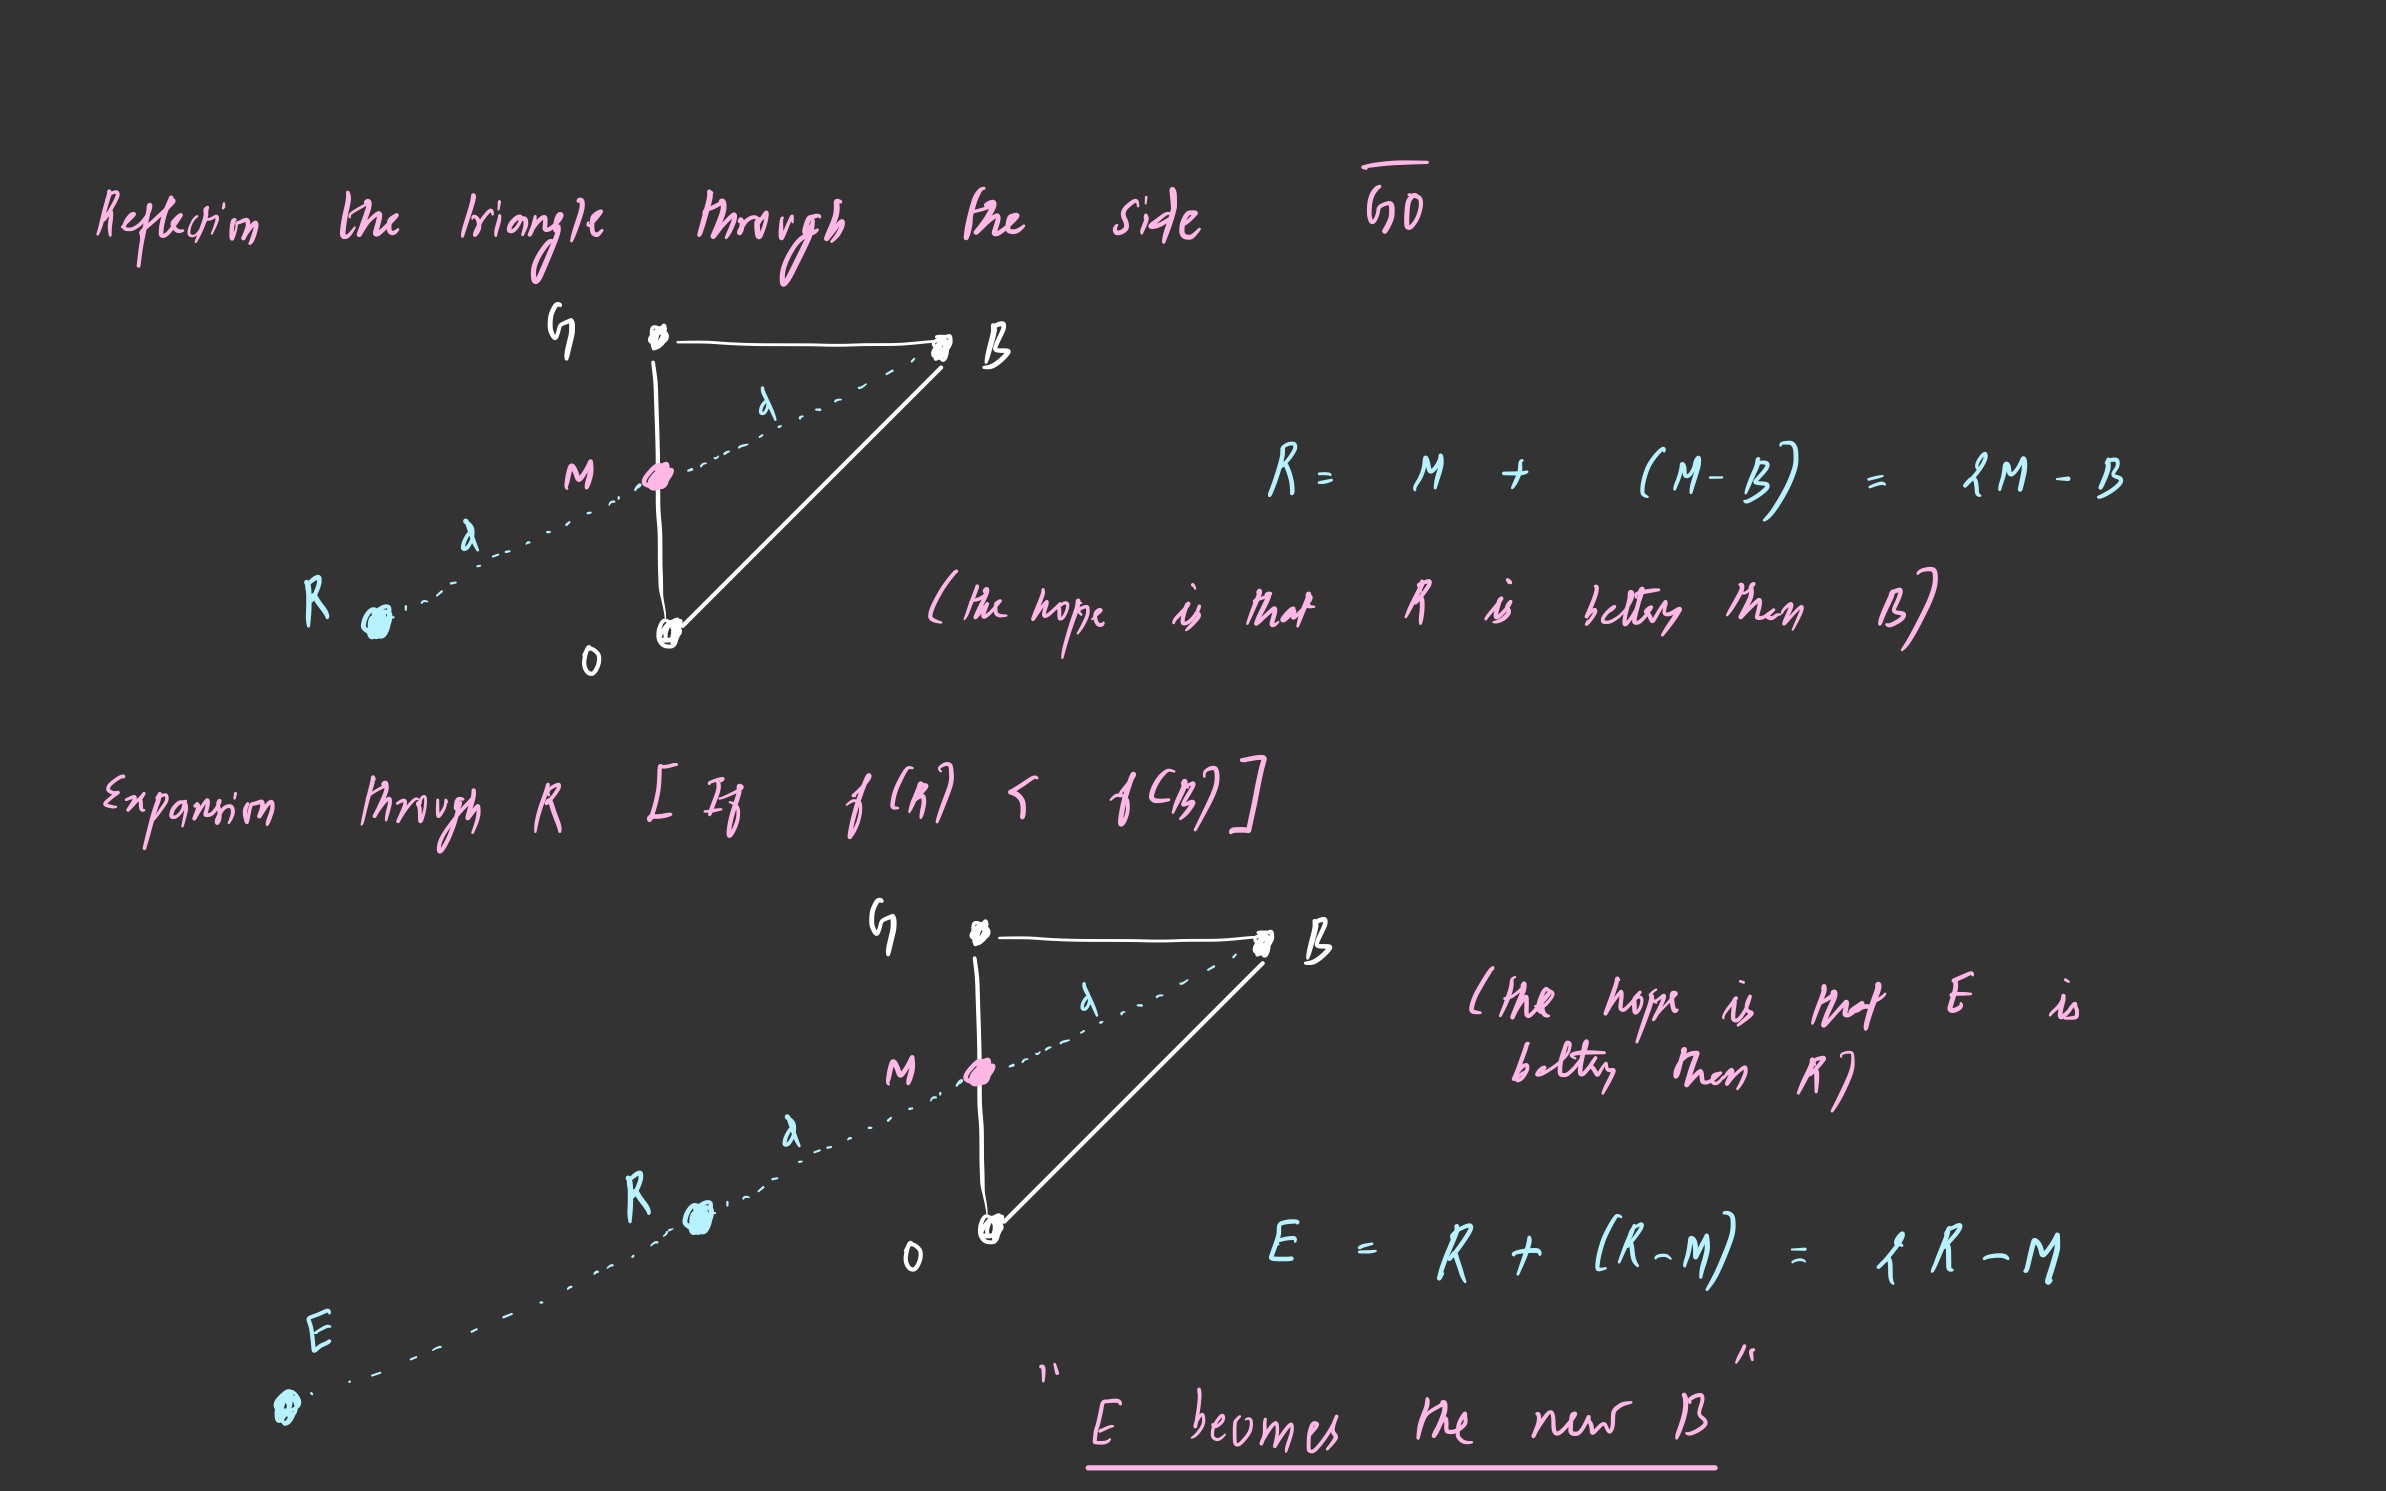 Reflection the triangle through the side GO
G
B
d
M
R = M + (M-B) = 2M - B
d
R
(the hope is that R is better than B)
O
Expansion through R [If f(R) < f(B)]
G
B
(the hope is that E is
better than R)
d
M
d
R
E = R + (R-M) = 2R - M
O
E
" E becomes the new B "